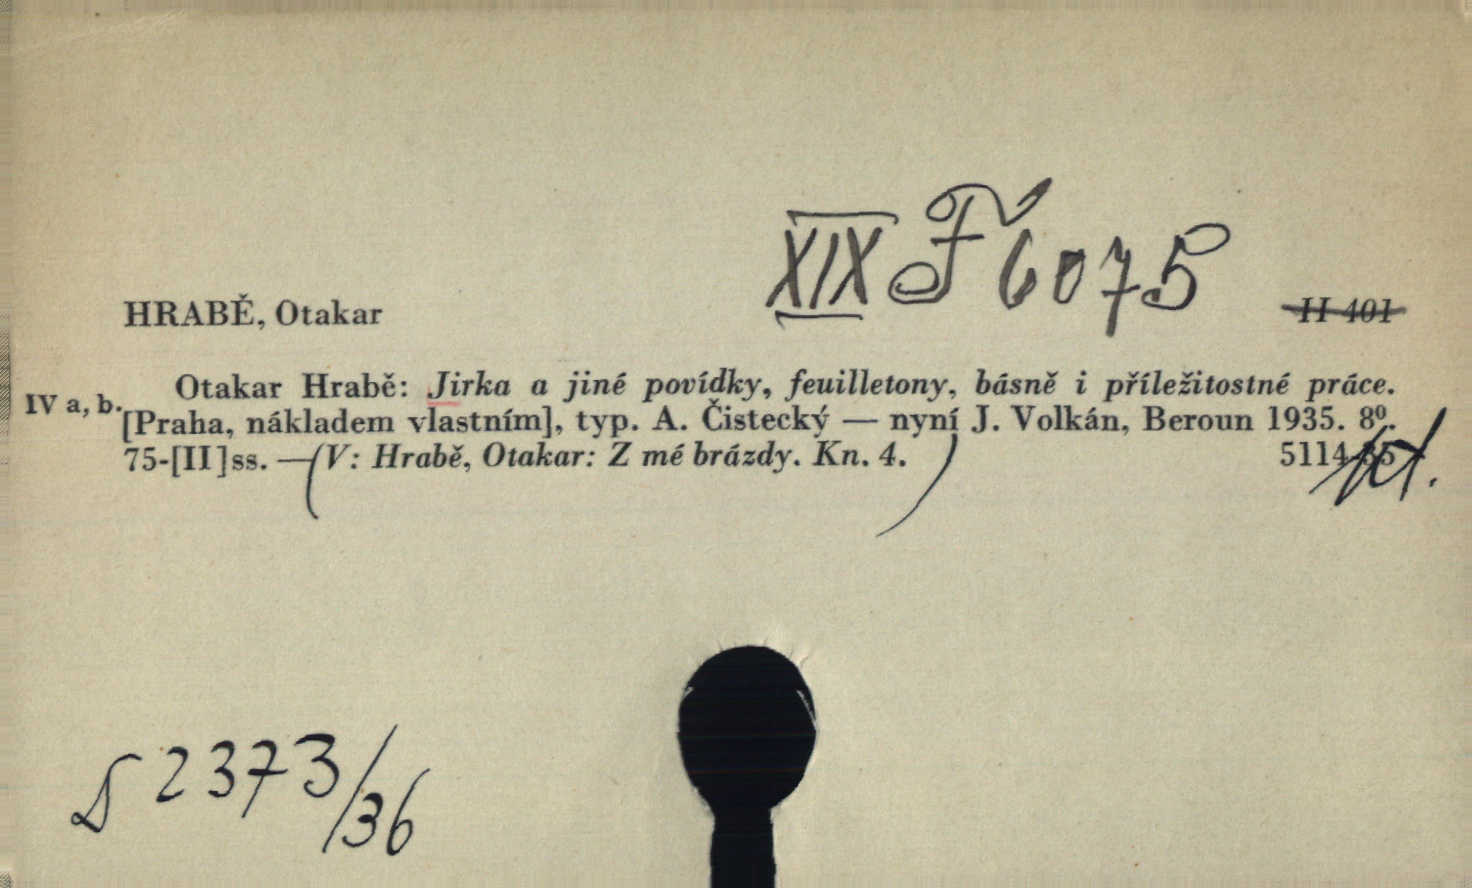 XIX F 6075
HRABĚ, Otakar
H 401
Otakar Hrabě: Jirka a jiné povídky, feuilletony, básně i příležitostné práce.
IV a, b.
[Praha, nákladem vlastním], typ. A. Čistecký — nyní J. Volkán, Beroun 1935. 8⁰.
75-[II]ss. — (V: Hrabě, Otakar: Z mé brázdy. Kn. 4.)
5114-35
2373/36